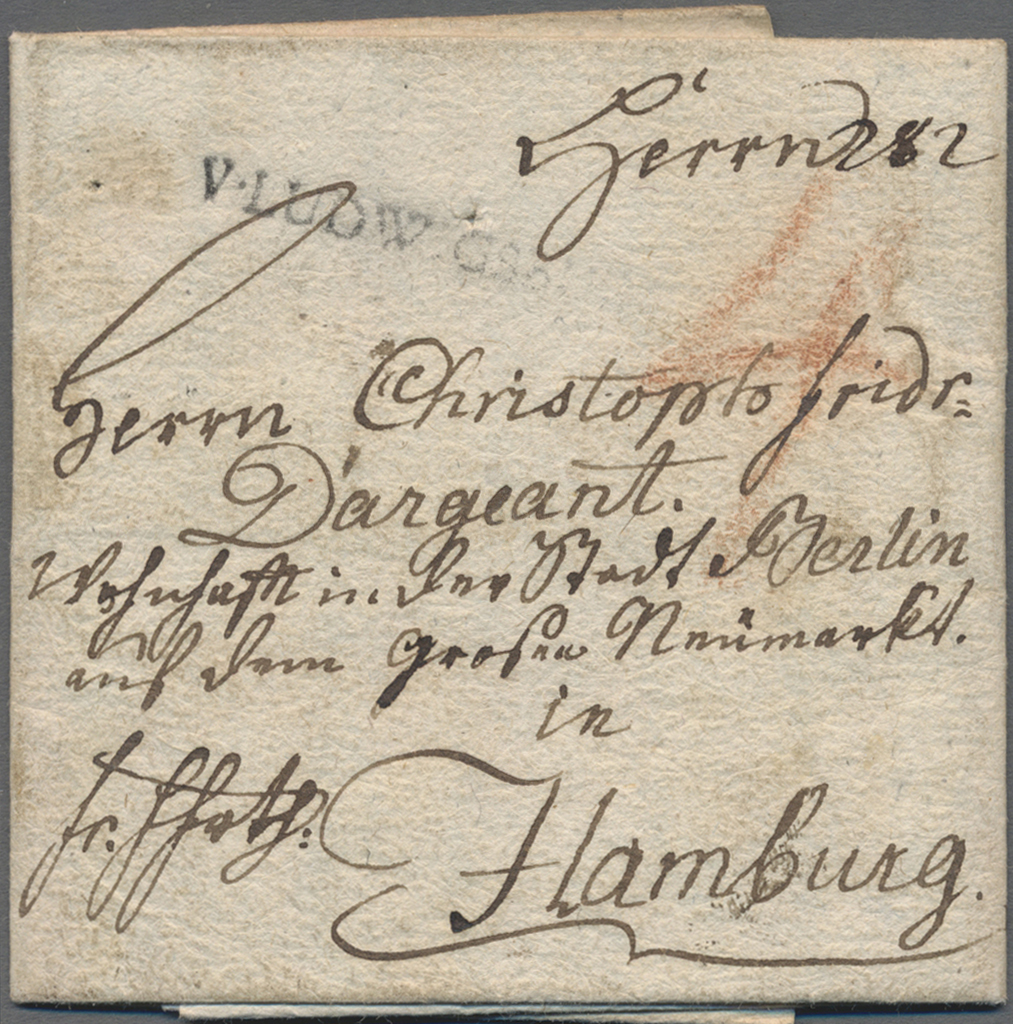 Herrn
V. LUDWIGSB.
Herrn Christoph fridr=
D'argeant.
Wohnhafft in der Stadt Berlin
auf dem grosen Neümarkt.
in
fr.
Hamburg.